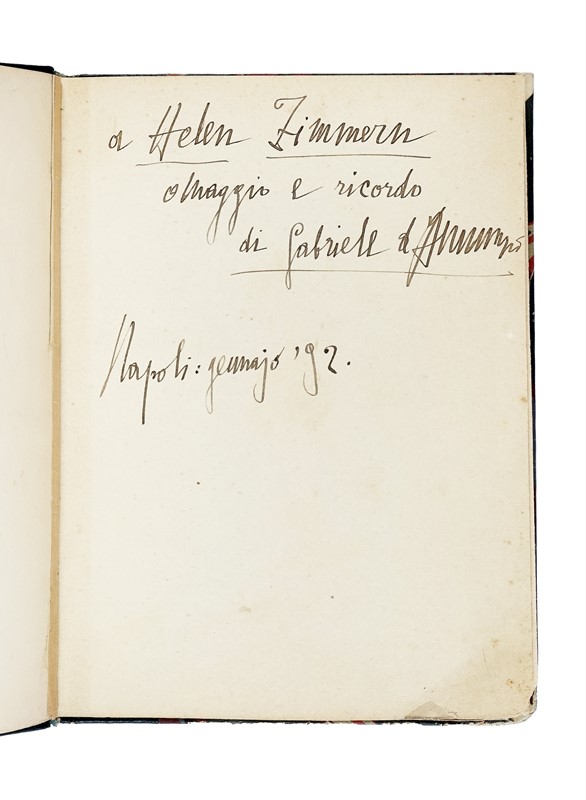 a Helen Zimmern
omaggio e ricordo
di Gabriele d'Annunzio
Napoli: gennajo '92.